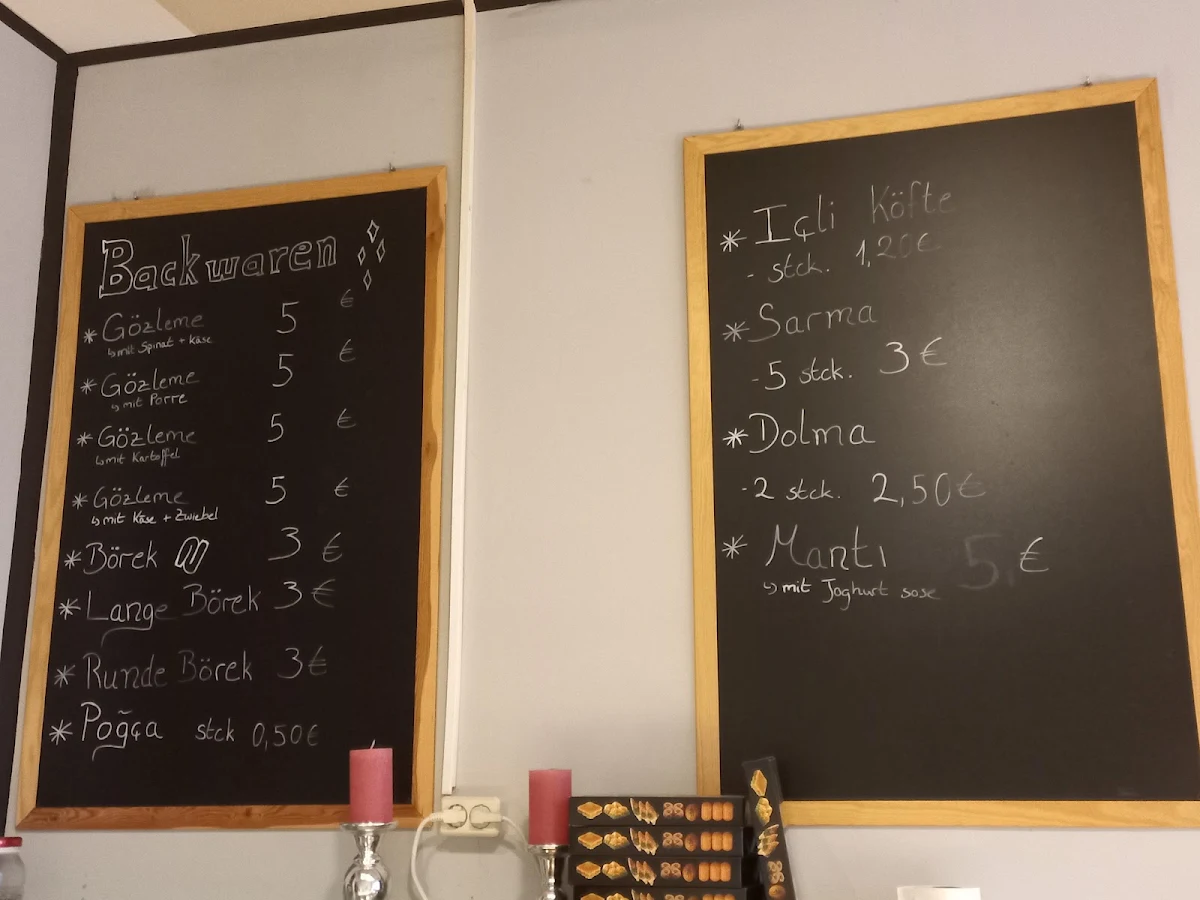 Backwaren
* Gözleme 5 €
↳ mit Spinat + Käse
* Gözleme 5 €
↳ mit Porre
* Gözleme 5 €
↳ mit Kartoffel
* Gözleme 5 €
↳ mit Käse + Zwiebel
* Börek 3 €
* Lange Börek 3 €
* Runde Börek 3 €
* Poğça stck 0,50 €
* Içli Köfte
- stck. 1,20 €
* Sarma
- 5 stck. 3 €
* Dolma
- 2 stck. 2,50 €
* Mantı 5, €
↳ mit Joghurt sose